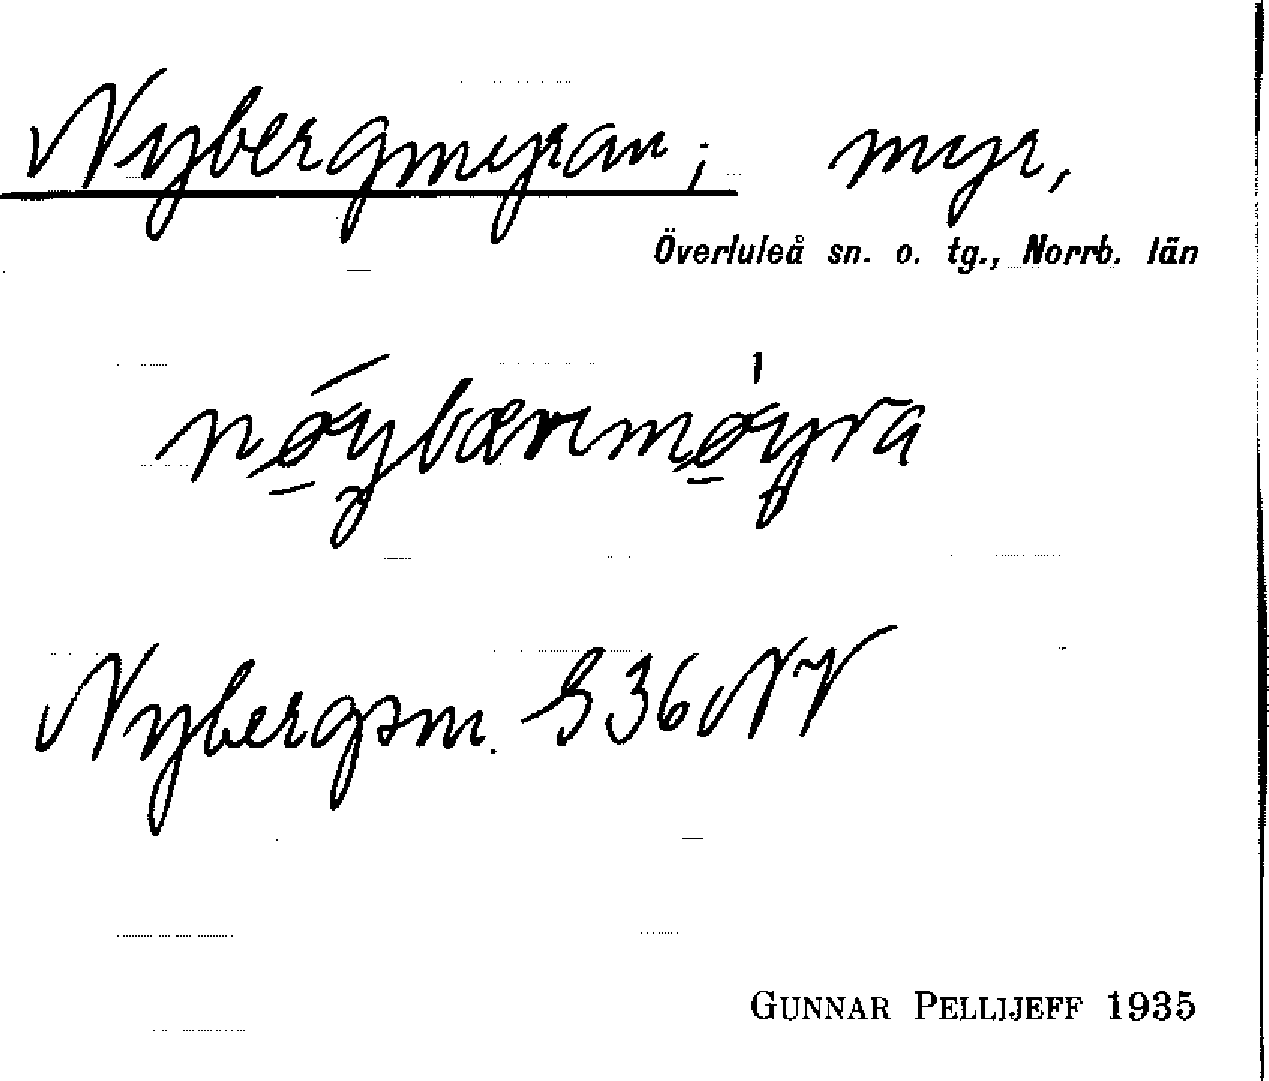 Nybergmyran; myr,
Överluleå sn. o. tg., Norrb. län
Nybergsm. S 36 NV
GUNNAR PELLIJEFF 1935